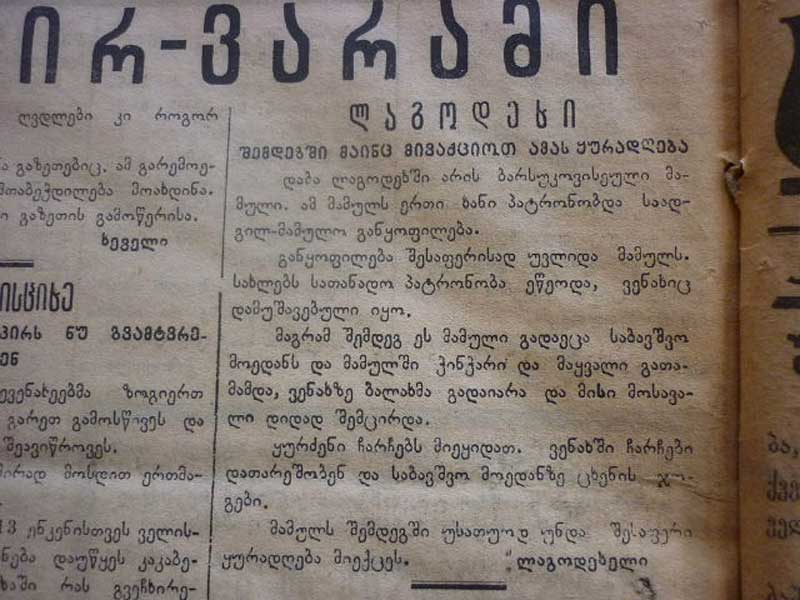 ირ-ვარამი
ღვდლები კი როგორ
გაზეთებიც. ამ გარემოე-
შთაბეჭდილება მოახდინა.
ი გაზეთის გამოწერისა.
ხეველი
ისციხე
პირს ნუ გვამტვრე-
ენ
ევენახეებმა ზოგიერთ
გარეთ გამოსწიეს და
შეავიწროვეს.
მოსდით ერთმა-
13 ენკენისთვეს ველის-
ნება დაუწყეს კაკაბე-
რას გვეჩხირე-
ლაგოდეხი
შემდეგში მაინც მივაქციოთ ამას ყურადღება
დაბა ლაგოდეხში არის ბარსუკოვისეული მა-
მული. ამ მამულს ერთი ხანი პატრონობდა საად-
გილ-მამულო განყოფილება.
განყოფილება შესაფერისად უვლიდა მამულს.
სახლებს სათანადო პატრონობა ეწეოდა, ვენახიც
დამუშავებული იყო.
მაგრამ შემდეგ ეს მამული გადაეცა საბავშვო
მოედანს და მამულში ჭინჭარი და მაყვალი გათა-
მამდა, ვენახზე ბალახმა გადაიარა და მისი მოსავა-
ლი დიდად შემცირდა.
ყურძენი ჩარჩებს მიეყიდათ. ვენახში ჩარჩები
დათარეშობენ და საბავშვო მოედანზე ცხენის ჯო-
გები.
მამულს შემდეგში უსათუოდ უნდა შესაფერი
ყურადღება მიექცეს. „ლაგოდეხელი
ბა,